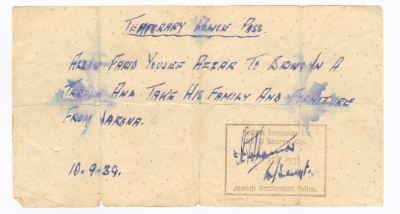 TEMPORARY VEHICLE PASS.
ALLOW FARID YOUSEF AZZAR TO BRING IN A
TRUCK AND TAKE HIS FAMILY AND FURNITURE
FROM SARONA.
10.9.39.
Inspector
Jewish Settlement Police.